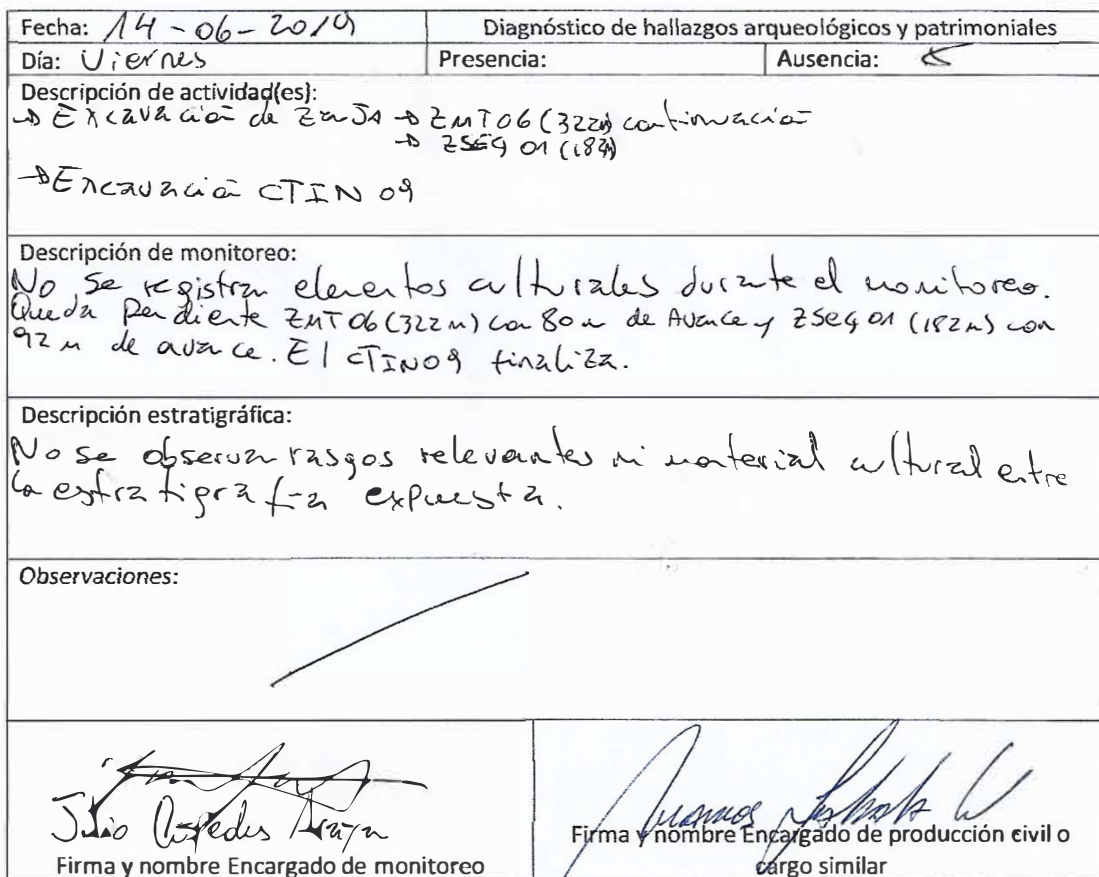 Fecha: 14-06-2019
Diagnóstico de hallazgos arqueológicos y patrimoniales
Día: Viernes
Presencia:
Ausencia:
Descripción de actividad(es):
→ Excavación de Zanja → ZMT06 (322m) continuación
→ ZSEG 01 (182m)
→ Excavación CTIN 09
Descripción de monitoreo:
No se registran elementos culturales durante el monitoreo.
Queda Pendiente ZMT06 (322m) con 80m de Avance y ZSeg 01 (182m) con
92 m de avance. El CTIN09 finaliza.
Descripción estratigráfica:
No se observan rasgos relevantes ni material cultural entre
la estratigrafía expuesta.
Observaciones:
Julio Araya
Firma y nombre Encargado de monitoreo
Firma y nombre Encargado de producción civil o
cargo similar